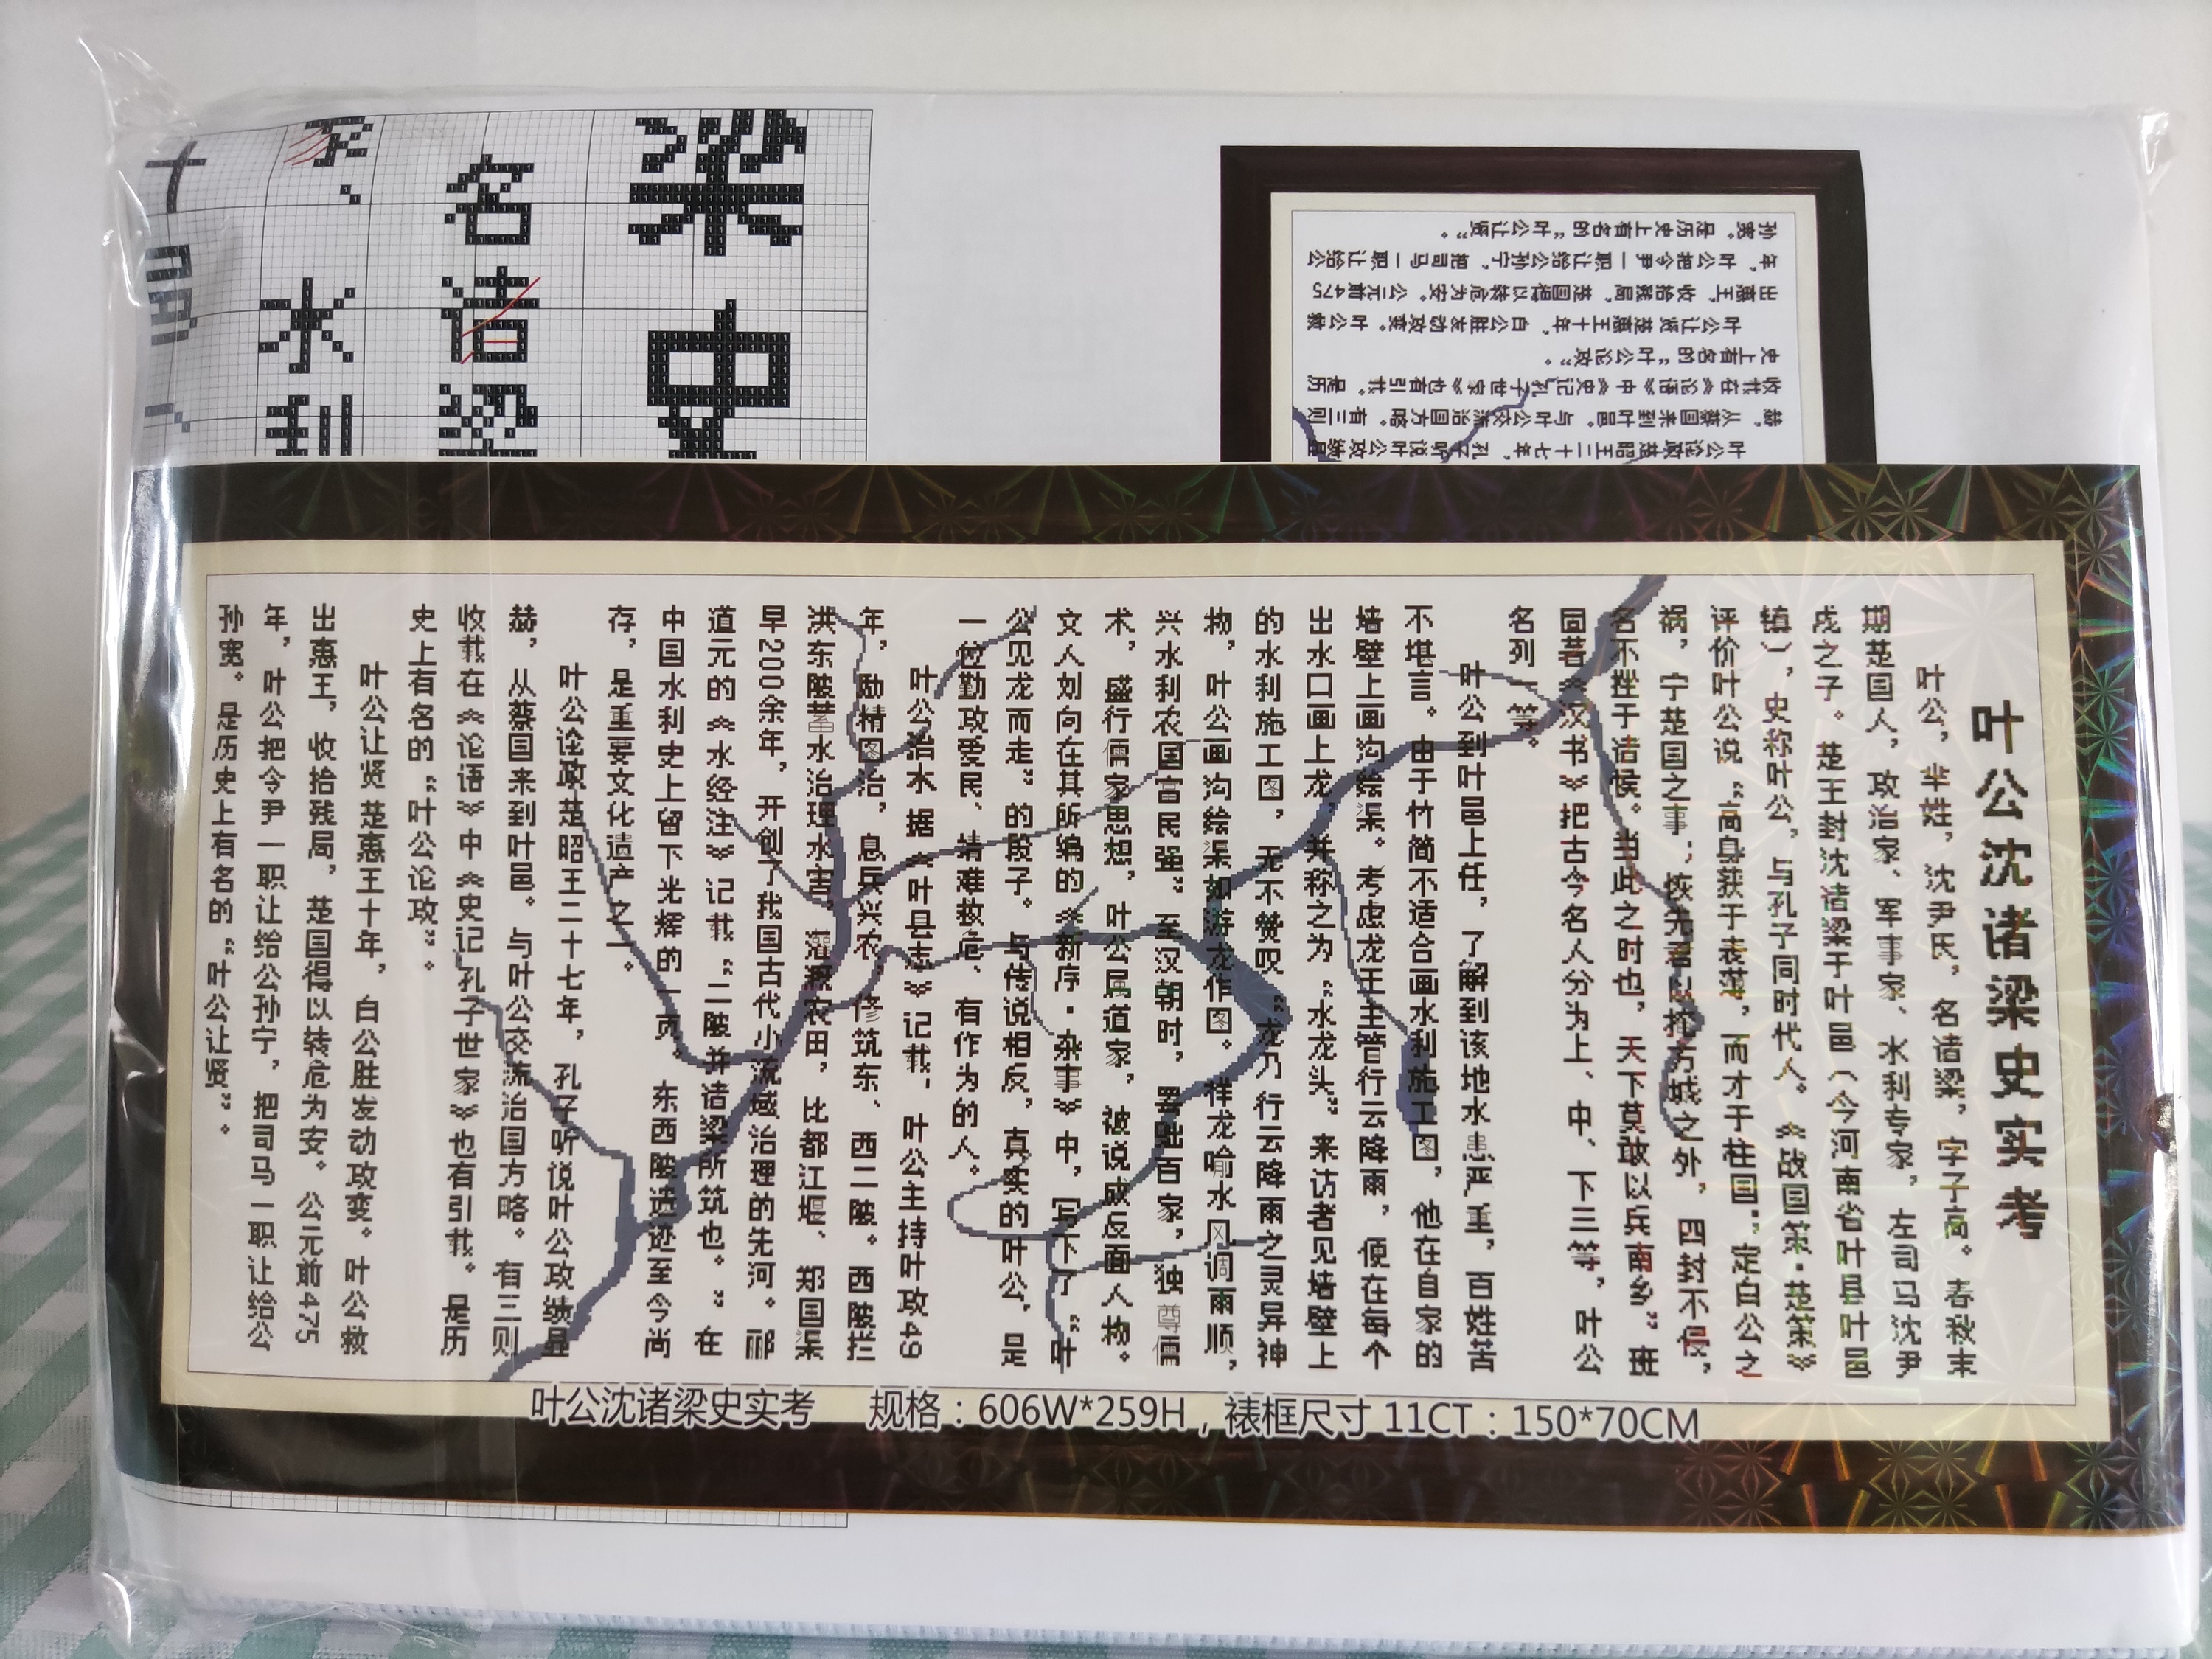 叶公沈诸梁史实考
叶公,芈姓,沈尹氏,名诸梁,字子高。春秋末
期楚国人,政治家、军事家、水利专家,左司马沈尹
戌之子。楚王封沈诸梁于叶邑(今河南省叶县叶邑
镇),史称叶公,与孔子同时代人。《战国策·楚策》
评价叶公说“高身获于表薄,而才于柱国;定白公之
祸,宁楚国之事;恢先君以掩方城之外,四封不侵,
名不挫于诸侯。当此之时也,天下莫敢以兵南乡”班
固著《汉书》把古今名人分为上、中、下三等,叶公
名列一等。
叶公到叶邑上任,了解到该地水患严重,百姓苦
不堪言。由于竹简不适合画水利施工图,他在自家的
墙壁上画沟绘渠。考虑龙王主管行云降雨,便在每个
出水口画上龙,并称之为“水龙头”。来访者见墙壁上
的水利施工图,无不赞叹“龙乃行云降雨之灵异神
物,叶公画沟绘渠如游龙作图。祥龙喻水风调雨顺,
兴水利农国富民强”至汉朝时,罢黜百家,独尊儒
术,盛行儒家思想,叶公属道家,被说成反面人物。
文人刘向在其所编的《新序·杂事》中,写下了“叶
公见龙而走”的段子。与传说相反,真实的叶公,是
一位勤政爱民、靖难救危、有作为的人。
叶公治水 据《叶县志》记载,叶公主持叶政49
年,励精图治,息兵兴农,修筑东、西二陂。西陂拦
洪东陂蓄水治理水害,灌溉农田,比都江堰、郑国渠
早200余年,开创了我国古代小流域治理的先河。郦
道元的《水经注》记载“二陂并诸梁所筑也。”在
中国水利史上留下光辉的一页。东西陂遗迹至今尚
存,是重要文化遗产之一。
叶公论政 楚昭王二十七年,孔子听说叶公政绩显
赫,从蔡国来到叶邑。与叶公交流治国方略。有三则
收载在《论语》中《史记孔子世家》也有引载。是历
史上有名的“叶公论政”。
叶公让贤 楚惠王十年,白公胜发动政变。叶公救
出惠王,收拾残局,楚国得以转危为安。公元前475
年,叶公把令尹一职让给公孙宁,把司马一职让给公
孙宽。是历史上有名的“叶公让贤”。
叶公沈诸梁史实考 规格:606W*259H,裱框尺寸 11CT:150*70CM
梁史
名诸梁
水利
叶公论政 楚昭王二十七年,孔子听说叶公政绩显
赫,从蔡国来到叶邑。与叶公交流治国方略。有三则
收载在《论语》中《史记孔子世家》也有引载。是历
史上有名的“叶公论政”。
叶公让贤 楚惠王十年,白公胜发动政变。叶公救
出惠王,收拾残局,楚国得以转危为安。公元前475
年,叶公把令尹一职让给公孙宁,把司马一职让给公
孙宽。是历史上有名的“叶公让贤”。